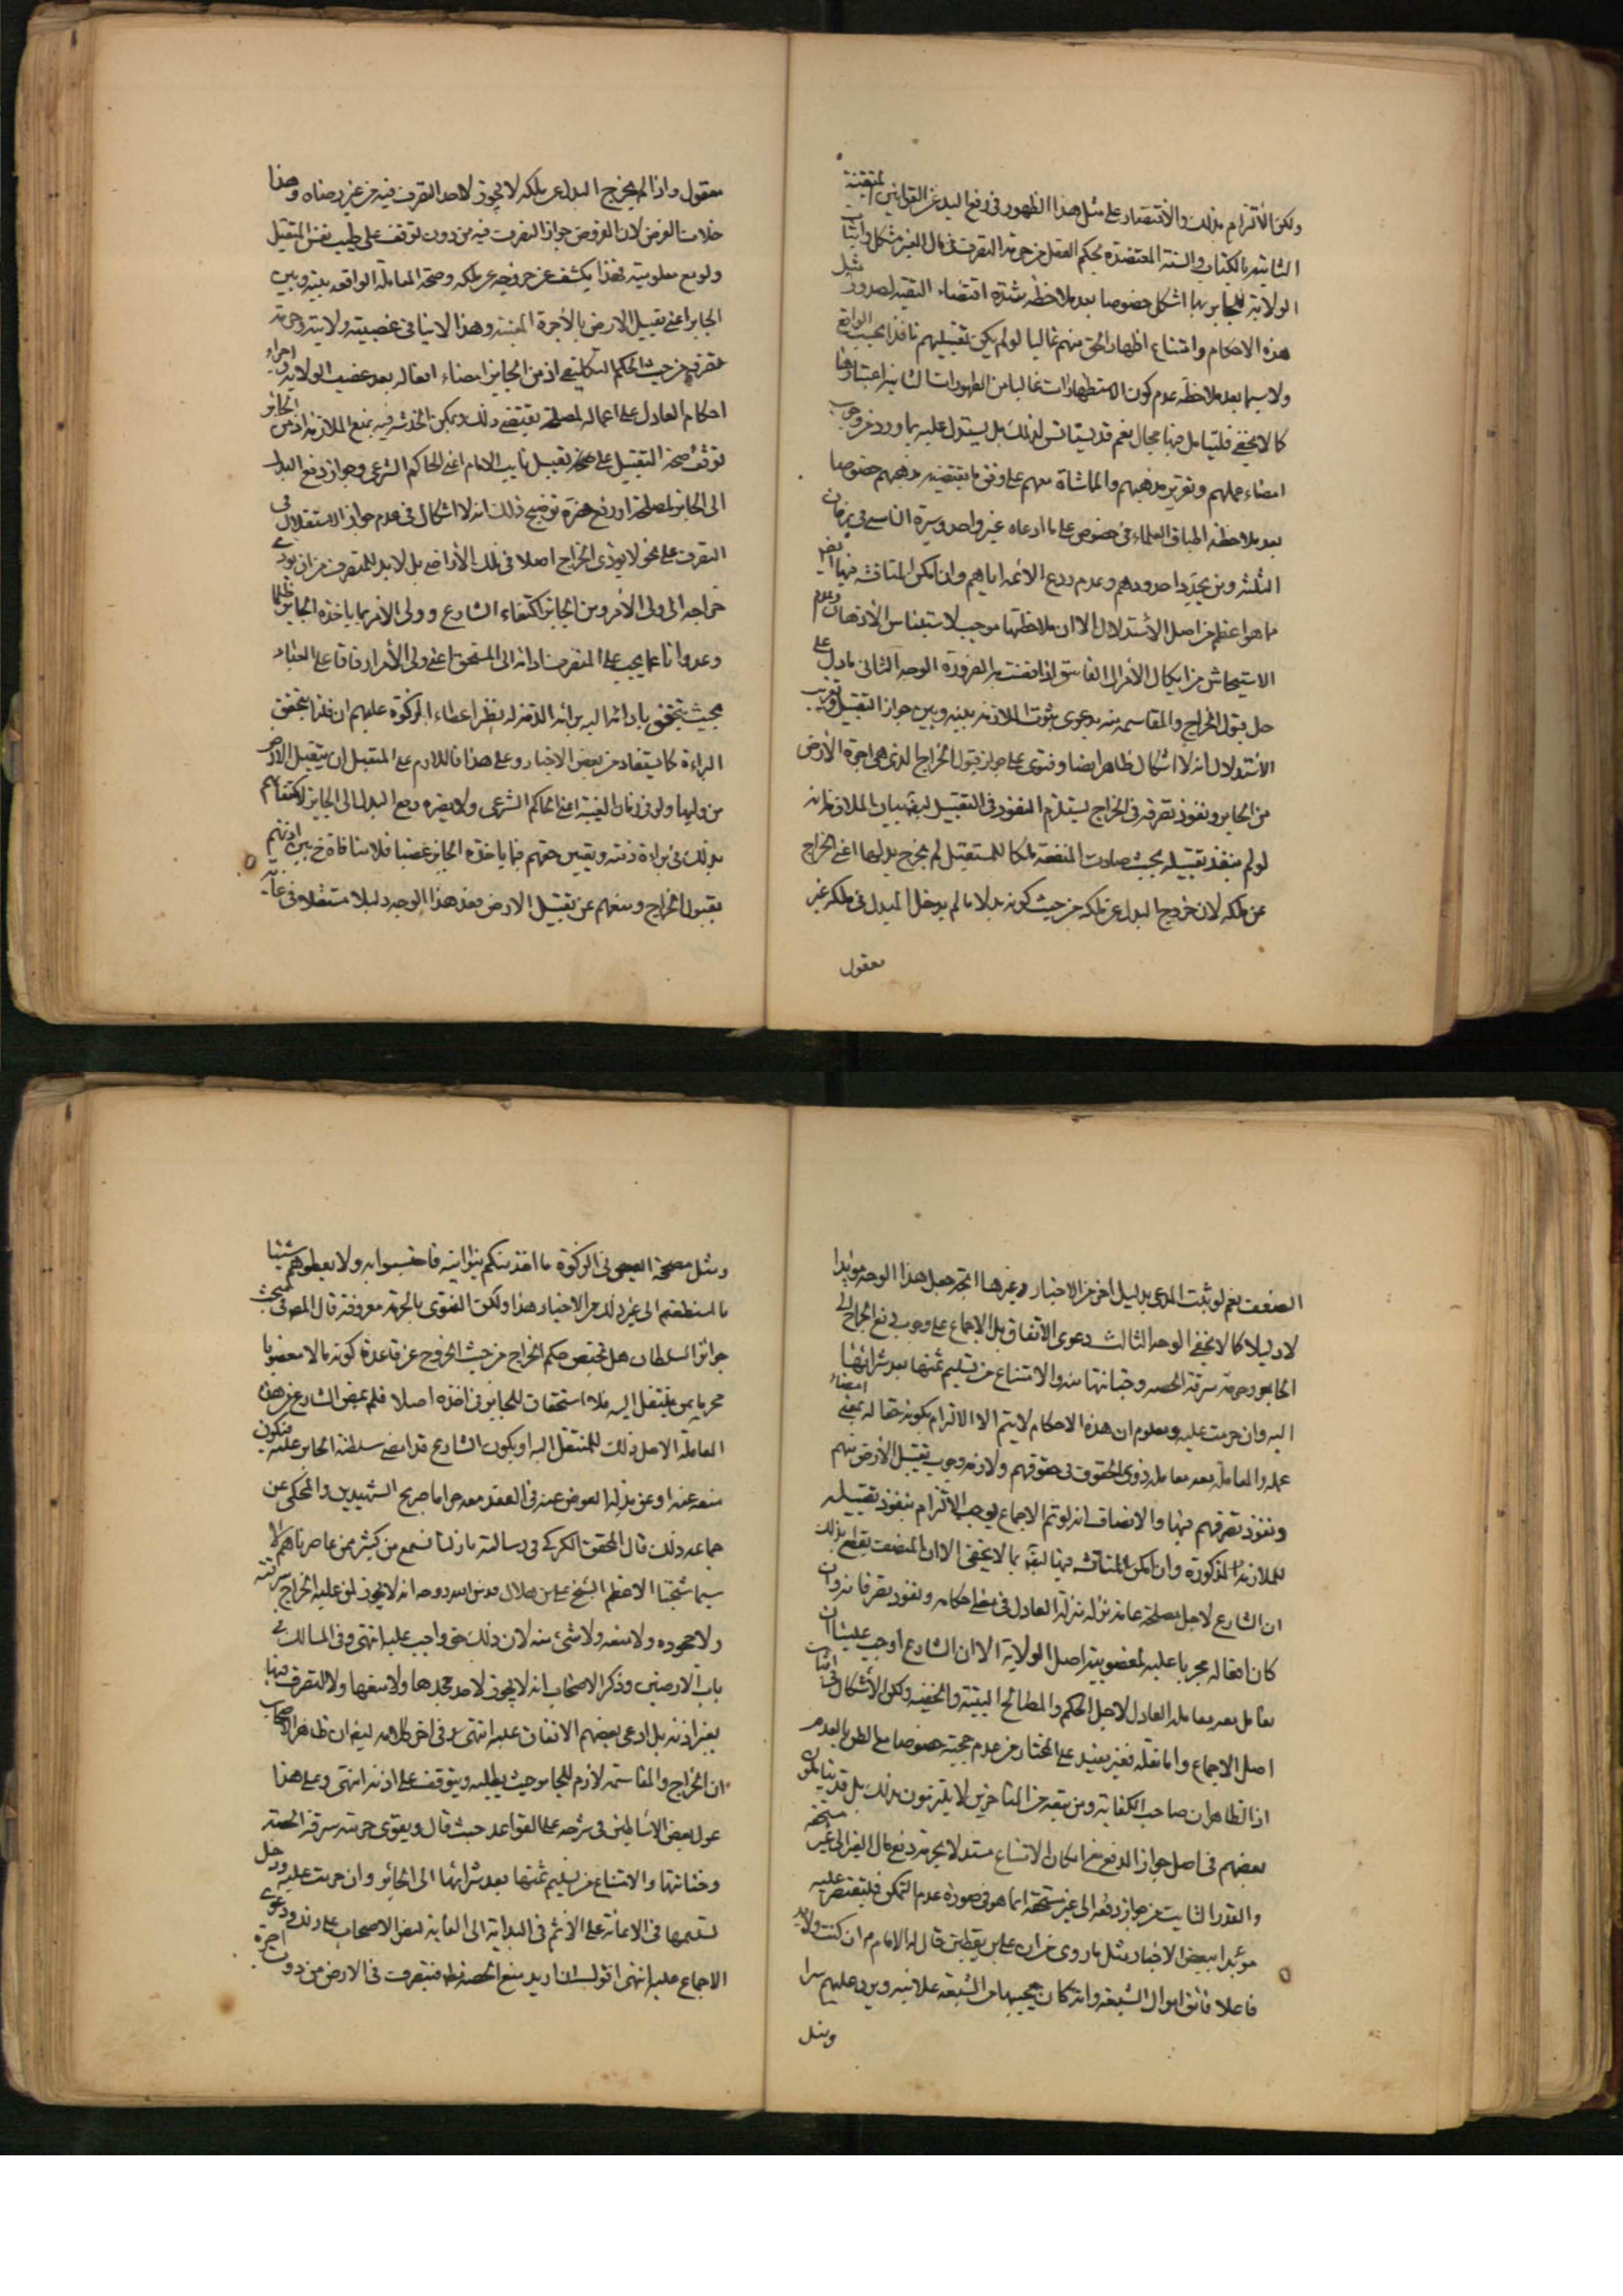 ولكن الألتزام بذلك والأقتصار على مثل هذا الظهور فى رفع اليد عن القوانين المتقنة
الثابتة بالكتاب والسنة المعتضدة بحكم العقل من حرمة التصرف فى مال الغير مشكل واثبات
الولاية للجاير بها اشكل خصوصا بعد ملاحظة شدة اقتضاء التقية لصدور مثل
هذه الاحكام وامتناع اظهار الحق منهم غالبا لو لم يكن تقبيلهم نافذا بحسب الواقع
ولا سيما بعد ملاحظة عدم كون الاستظهارات غالبا من الظهورات الثابتة اعتبارها
كما لا يخفى فليتامل فيها مجال نعم قد يستانس لذلك بل يستدل عليه بما ورد من وجوب
امضاء عملهم وتقرير مذهبهم والمماشاة معهم على وفق ما يقتضيه مذهبهم خصوصا
بعد ملاحظة اطباق العلماء فى خصوص على ما ادعاه غير واحد وسيرة الناس فى زمان
الثلثة ومن يحذو حذوهم وعدم ردع الأئمة اياهم وان امكن المناقشة فيها
مما هو اعظم من اصل الأستدلال الا ان ملاحظتها موجب لاستيناس الأذهان وعدم
الاستيحاش من ايكال الأمر الى الفاسق اذا اقتضت به الضرورة الوجه الثانى ما دل على
حل قبول الخراج والمقاسمة منه بدعوى ثبوت الملازمة بينه وبين جواز التقبيل وتقريب
الأستدلال انه لا اشكال ظاهرا نصا وفتوى على جواز قبول الخراج الذى هى اجرة الأرض
من الجاير ونفوذ تصرفه فى الخراج يستلزم النفوذ فى التقبيل لبيان الملازمة انه
لو لم ينفذ تقبيله بحيث صارت المنفعة ملكا للمستقبل لم يخرج بدلها اعنى الخراج
عن ملكه لان خروج البدل عن ملكه من حيث كونه بدلا ما لم يدخل المبدل فى ملكه غير
معقول
معقول واذا لم يخرج البدل عن ملكه لا يجوز لاحد التصرف فيه من غير رضاه وهذا
خلاف الفرض لان المفروض جواز التصرف فيه من دون توقف على طيب نفس المتقبل
ولو مع معلوميته فهذا يكشف عن خروجه عن ملكه وصحة المعاملة الواقعة بينه وبين
الجاير اعنى تقبيل الارض بالأجرة المعينة وهذا لا ينافى غصبيته ولايته وحرمة
تصرفه من حيث الحكم التكليفى اذ من الجايز امضاء افعاله بعد غصب الولاية واجراء
احكام العادل على اعماله لمصلحة يقتضى ذلك ويمكن الخدشة فيه بمنع الملازمة اذ من الجايز
توقف صحة التقبيل على صحة تقبيل نايب الامام اعنى الحاكم الشرعى وجواز دفع البدل
الى الجاير لمصلحة او رفع ضرره توضيح ذلك انه لا اشكال فى عدم جواز الاستقلال فى
التصرف على نحو لا يؤدى الخراج اصلا فى تلك الأراضى بل لا بد للمتصرف من ان يؤدى
خراجه الى ولى الأمر ومن الجايز اكتفاء الشارع وولى الأمر بما ياخذه الجاير ظلما
وعدوانا عما يجب على المتصرف اداؤه الى المستحق اعنى ولى الأمر ارفاقا على العباد
بحيث يتحقق بادائه اليه برائة الذمة له نظير اعطاء الزكوة عليهم ان قلنا بتحقق
البراءة كما يستفاد من بعض الاخبار وعلى هذا فاللازم على المتقبل ان يتقبل الارض
من وليها ولو فى زمان الغيبة اعنى الحاكم الشرعى ولا يضره دفع البدل الى الجاير لاكتفائهم
بذلك فى براءة ذمته وتعيين حقهم فيما ياخذه الجاير غصبا فلا منافاة ح بين اذنهم
بقبول الخراج ومنعهم عن تقبيل الارض فعد هذا الوجه دليلا مستقلا فى غاية
الضعف نعم لو ثبت المدعى بدليل اخر من الاخبار وغيرها اتجه جعل هذا الوجه مؤيدا
لا دليلا كما لا يخفى الوجه الثالث دعوى الأتفاق بل الاجماع على وجوب دفع الخراج الى
الجاير وحرمة سرقة الحصة وخيانتها منه والامتناع من تسليم ثمنها بعد شرائها
اليه وان حرمت عليه ومعلوم ان هذه الاحكام لا يتم الا الالتزام بكونه حقا له بمعنى امضاء
عمله والمعاملة معه معاملة ذوى الحقوق فى حقوقهم ولازمه وجوب تقبيل الأرض منهم
ونفوذ تصرفهم فيها والانصاف انه لو تم الاجماع يوجب الالتزام بنفوذ تقبيله
للملازمة المذكورة وان امكن المناقشة فيها ايضا بما لا يخفى الا ان المنصف يقطع بذلك
ان الشارع لاجل مصلحة عامة نزله منزلة العادل فى مضى احكامه ونفوذ تصرفاته وان
كان افعاله محرما عليه لمغصوبية اصل الولاية الا ان الشارع اوجب علينا ان
نعامل معه معاملة العادل لاجل الحكم والمصالح البينة والخفية ولكن الأشكال فى اثبات
اصل الاجماع واما نقله فغير مفيد على المختار من عدم حجيته خصوصا مع الظن بالعدم
اذ الظاهر ان صاحب الكفاية ومن تبعه من المتاخرين لا يلتزمون بذلك بل قد يتأملون
بعضهم فى اصل جواز الدفع مع امكان الامتناع مستدلا بحرمة دفع مال الغير الى غير مستحقه
والقدر الثابت من جواز دفعه الى غير مستحقه انما هو فى صورة عدم التمكن فليقتصر عليه
مؤيدا ببعض الاخبار مثل ما روى من ان على بن يقطين قال له الامام ع ان كنت ولا بد
فاعلا فاتق اموال الشيعة وانه كان يجبيها من الشيعة علانية ويرد عليهم سرا
ومثل
ومثل صحيحة العيص فى الزكوة ما اخذ منكم بنو امية فاحتسبوا به ولا تعطوهم شيئا
ما استطعتم الى غير ذلك من الاخبار هذا ولكن الفتوى بالحرمة معروفة قال المص فى مبحث
جوائز السلطان هل يختص حكم الخراج من حيث الخروج عن قاعدة كونه مالا مغصوبا
محرما بمن ينتقل اليه فلا استحقاق للجاير فى اخذه اصلا فلم يمض الشارع من هذه
المعاملة الا حل ذلك للمنتقل اليه او يكون الشارع قد امضى سلطنة الجاير عليه فيكون
منعه عنه او عن بذله العوض عنه فى العقد معه حراما صريح الشهيدين والمحكى عن
جماعة ذلك قال المحقق الكركى فى رسالته ما زلنا نسمع من كثير ممن عاصرناهم لا
سيما شيخنا الاعظم الشيخ على بن هلال قدس الله روحه انه لا يجوز لمن عليه الخراج سرقته
ولا جحوده ولا منعه ولا شئ منه لان ذلك حق واجب عليه انتهى وفى المسالك فى
باب الارضين وذكر الاصحاب انه لا يجوز لاحد جحدها ولا منعها ولا التصرف فيها
بغير اذنه بل ادعى بعضهم الاتفاق عليه انتهى وفى اخر كلامه ايضا ان ظاهر الاصحاب
ان الخراج والمقاسمة لازم للجاير حيث يطلبه ويتوقف على اذنه انتهى وعلى هذا
عول بعض الأساطين فى شرحه على القواعد حيث قال ويقوى حرمة سرقة الحصة
وخيانتها والامتناع من تسليم ثمنها بعد شرائها الى الجائر وان حرمت عليه ودخل
تسليمها فى الاعانة على الاثم فى البداية الى الغاية لنص الاصحاب على ذلك ودعوى
الاجماع عليه انتهى اقول ان اريد منع الحصة مطلقا فيتصرف فى الارض من دون اجرة